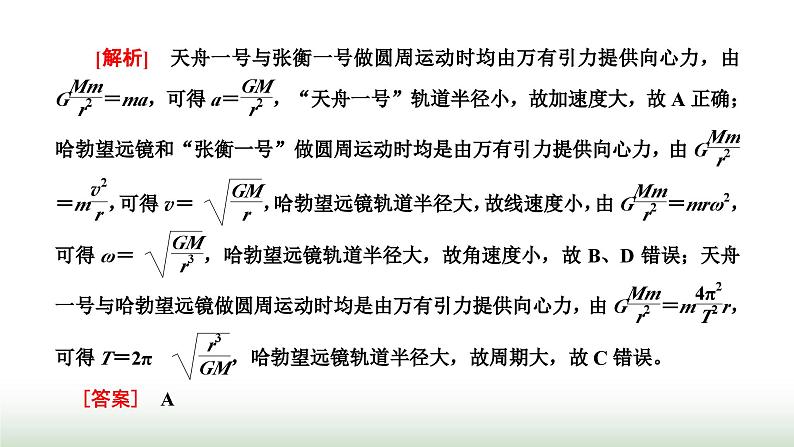 [解析] 天舟一号与张衡一号做圆周运动时均由万有引力提供向心力，由
G\frac{Mm}{r^2}＝ma，可得 a＝\frac{GM}{r^2}，“天舟一号”轨道半径小，故加速度大，故 A 正确；
哈勃望远镜和“张衡一号”做圆周运动时均是由万有引力提供向心力，由 G\frac{Mm}{r^2}
＝m\frac{v^2}{r}，可得 v＝\sqrt{\frac{GM}{r}}，哈勃望远镜轨道半径大，故线速度小，由 G\frac{Mm}{r^2}＝mrω^2，
可得 ω＝\sqrt{\frac{GM}{r^3}}，哈勃望远镜轨道半径大，故角速度小，故 B、D 错误；天舟
一号与哈勃望远镜做圆周运动时均是由万有引力提供向心力，由 G\frac{Mm}{r^2}＝m\frac{4π^2}{T^2}r，
可得 T＝2π\sqrt{\frac{r^3}{GM}}，哈勃望远镜轨道半径大，故周期大，故 C 错误。
[答案] A